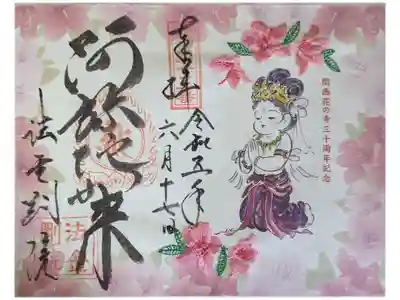 関西花の寺三十周年記念
奉拝
令和五年
六月十七日
阿弥陀如来
法金剛院
法金
剛院